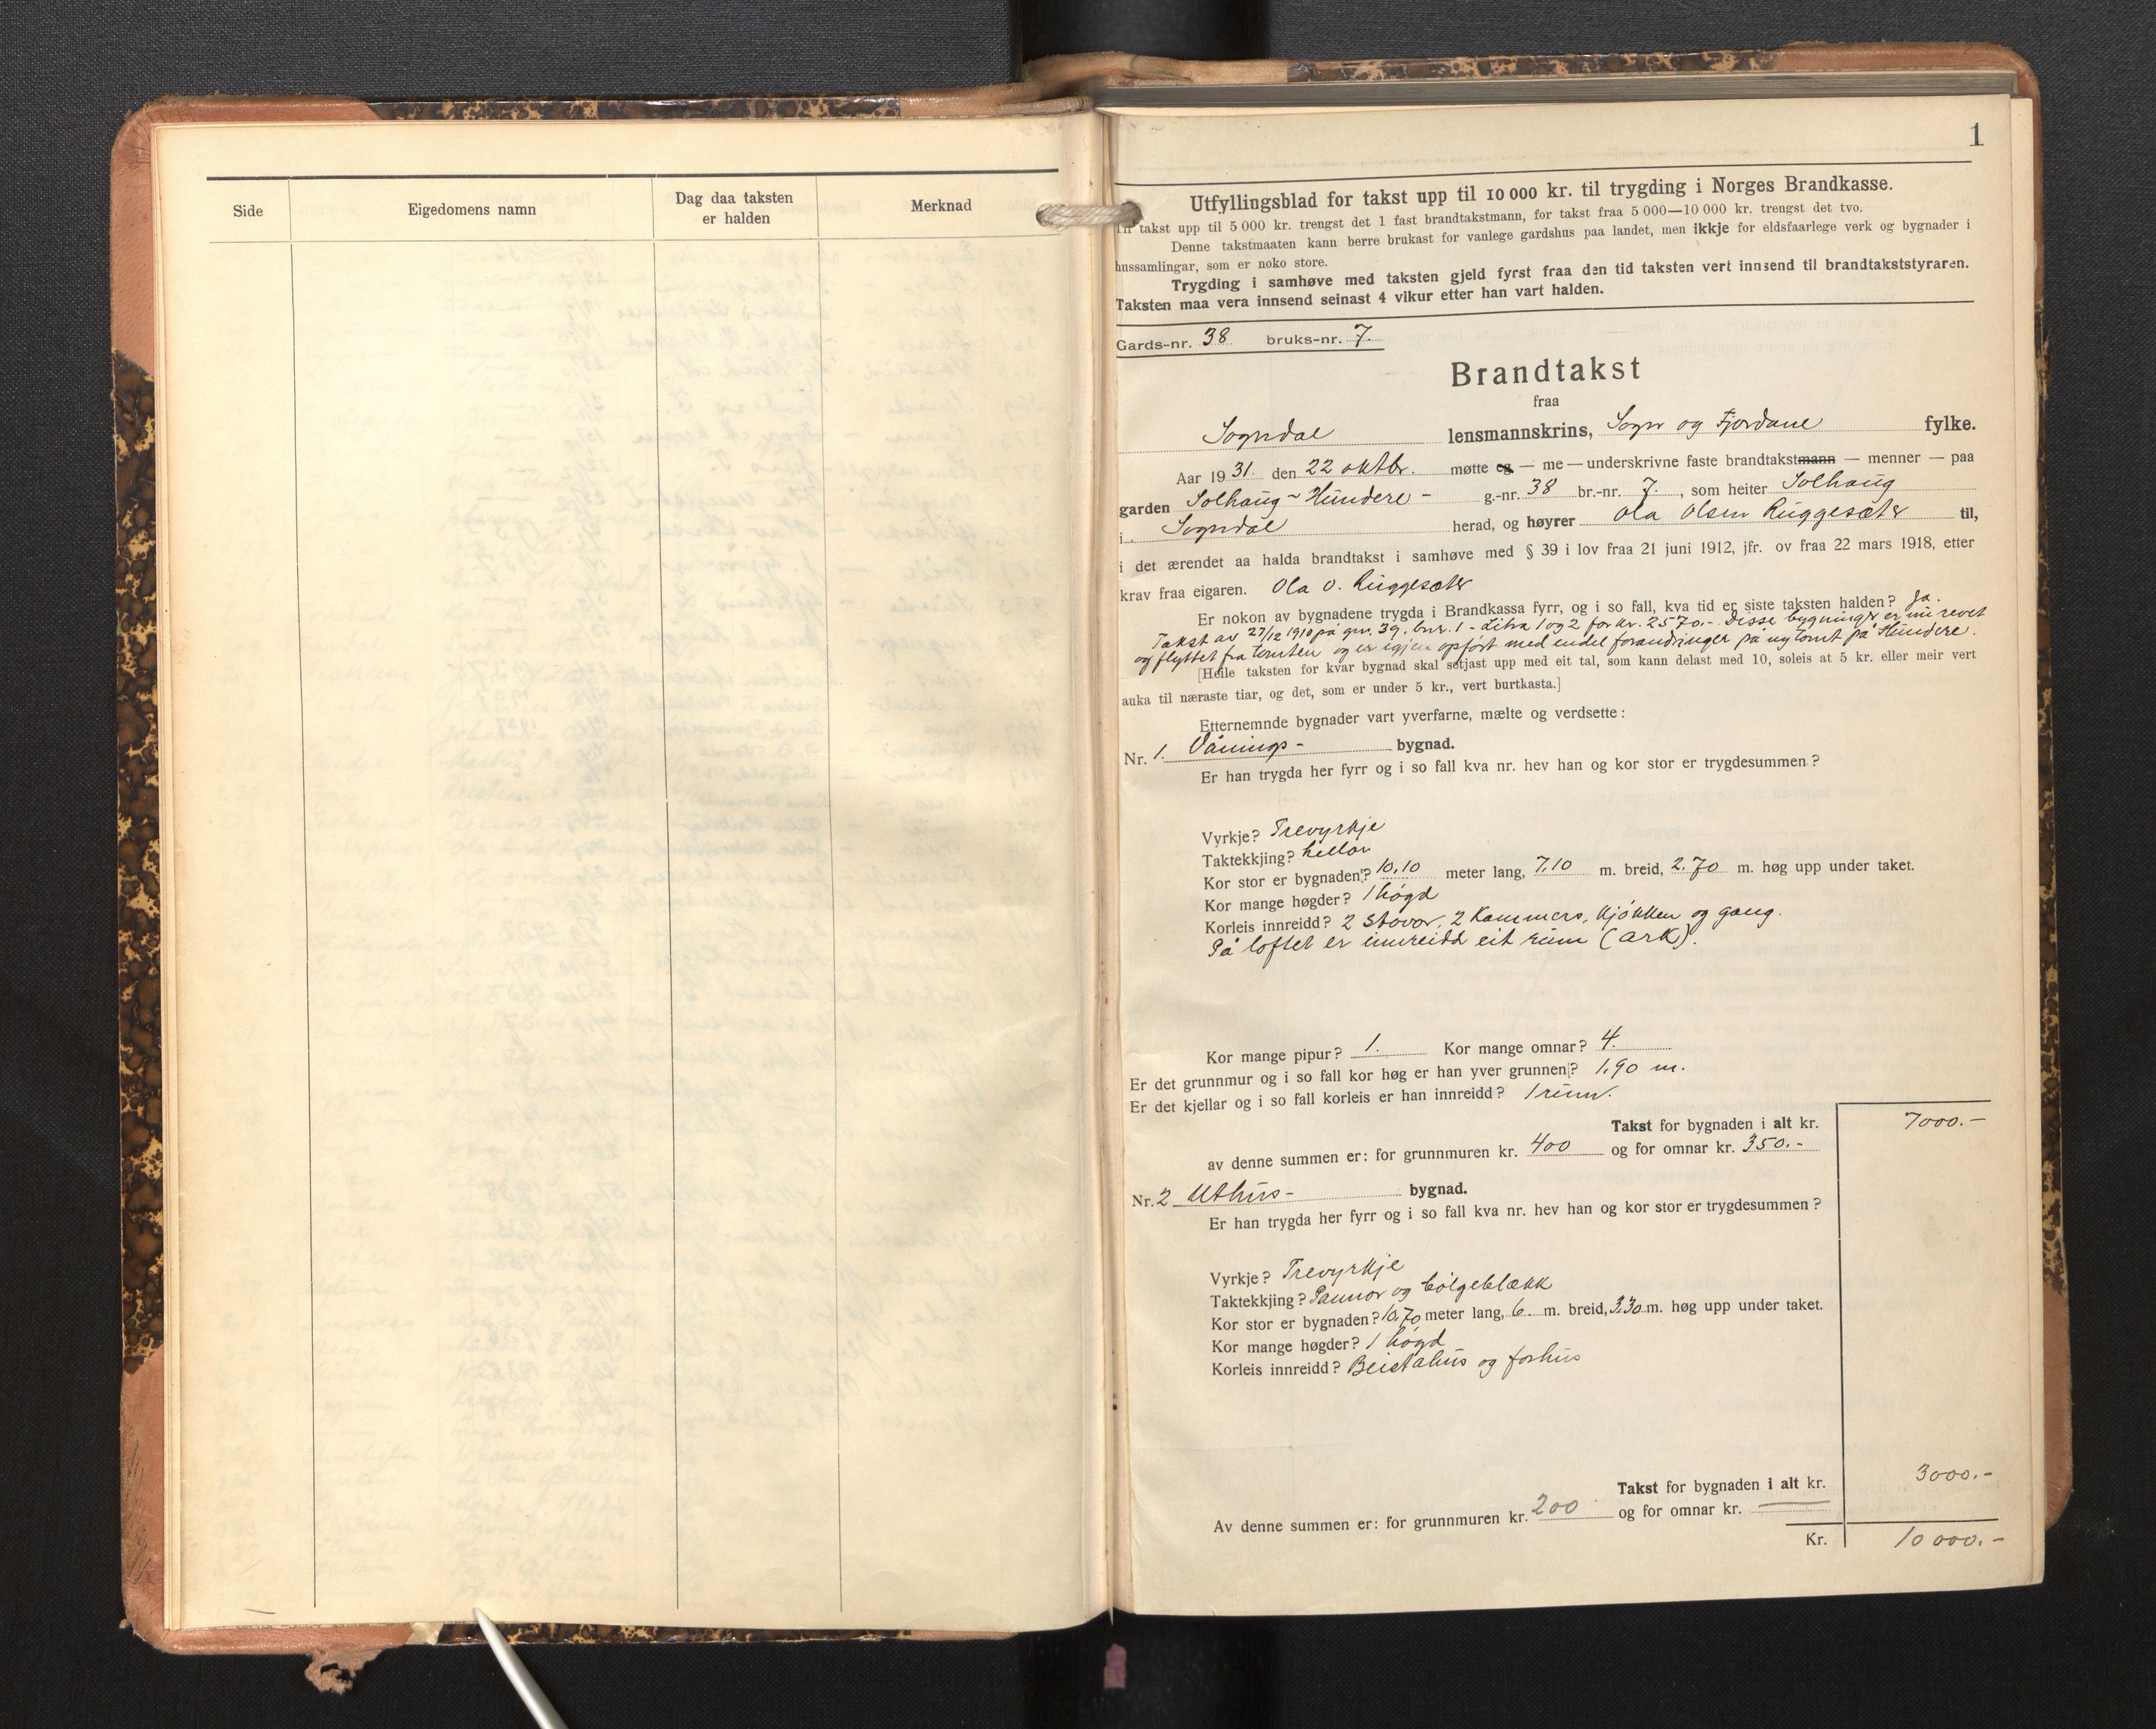 Side
Eigedomens namn
Dag daa taksten
er halden
Merknad
1
Utfyllingsblad for takst upp til 10 000 kr. til trygding i Norges Brandkasse.
Til takst upp til 5 000 kr. trengst det 1 fast brandtakstmann, for takst fraa 5 000—10 000 kr. trengst det tvo.
Denne takstmaaten kann berre brukast for vanlege gardshus paa landet, men ikkje for eldsfaarlege verk og bygnader i
hussamlingar, som er noko store.
Trygding i samhøve med taksten gjeld fyrst fraa den tid taksten vert innsend til brandtakststyraren.
Taksten maa vera innsend seinast 4 vikur etter han vart halden.
Gards-nr. 38 bruks-nr. 7.
Brandtakst
fraa
Sogndal lensmannskrins, Sogn og Fjordane fylke.
Aar 1931 den 22 oktbr. møtte eg — me — underskrivne faste brandtakstmann — menner — paa
garden Solhaug - Hundere - g.-nr. 38 br.-nr. 7., som heiter Solhaug
i Sogndal herad, og høyrer Ola Olsen Ruggesæter til,
i det ærendet aa halda brandtakst i samhøve med § 39 i lov fraa 21 juni 1912, jfr. ov fraa 22 mars 1918, etter
krav fraa eigaren. Ola O. Ruggesæter
Er nokon av bygnadene trygda i Brandkassa fyrr, og i so fall, kva tid er siste taksten halden? Ja.
Takst av 27/12 1910 på gnr. 39. bnr. 1 - Litra 1 og 2 for kr. 2570.- Disse bygninger er nu revet
og flyttet fra tomten og er igjen opført med endel forandringer på ny tomt på Hundere.
[Heile taksten for kvar bygnad skal setjast upp med eit tal, som kann delast med 10, soleis at 5 kr. eller meir vert
auka til næraste tiar, og det, som er under 5 kr., vert burtkasta.]
Etternemnde bygnader vart yverfarne, mælte og verdsette:
Nr. 1. Vånings- bygnad.
Er han trygda her fyrr og i so fall kva nr. hev han og kor stor er trygdesummen?
Vyrkje? Trevyrkje
Taktekkjing? hellor
Kor stor er bygnaden? 10,10 meter lang, 7,10 m. breid, 2.70 m. høg upp under taket.
Kor mange høgder? 1 høgd
Korleis innreidd? 2 stovor, 2 Kammers, kjøkken og gang.
På loftet er innreidd eit rum (ark).
Kor mange pipur? 1. Kor mange omnar? 4.
Er det grunnmur og i so fall kor høg er han yver grunnen? 1,90 m.
Er det kjellar og i so fall korleis er han innreidd? 1 rum.
Takst for bygnaden i alt kr. 7000.-
av denne summen er: for grunnmuren kr. 400 og for omnar kr. 350.-
Nr. 2 Uthus- bygnad.
Er han trygda her fyrr og i so fall kva nr. hev han og kor stor er trygdesummen?
Vyrkje? Trevyrkje
Taktekkjing? Pannor og bølgeblækk
Kor stor er bygnaden? 10,70 meter lang, 6 m. breid, 3.30 m. høg upp under taket.
Kor mange høgder? 1 høgd
Korleis innreidd? Beistahus og forhus
Takst for bygnaden i alt kr. 3000.-
Av denne summen er: for grunnmuren kr. 200 og for omnar kr. —
Kr. 10 000.-